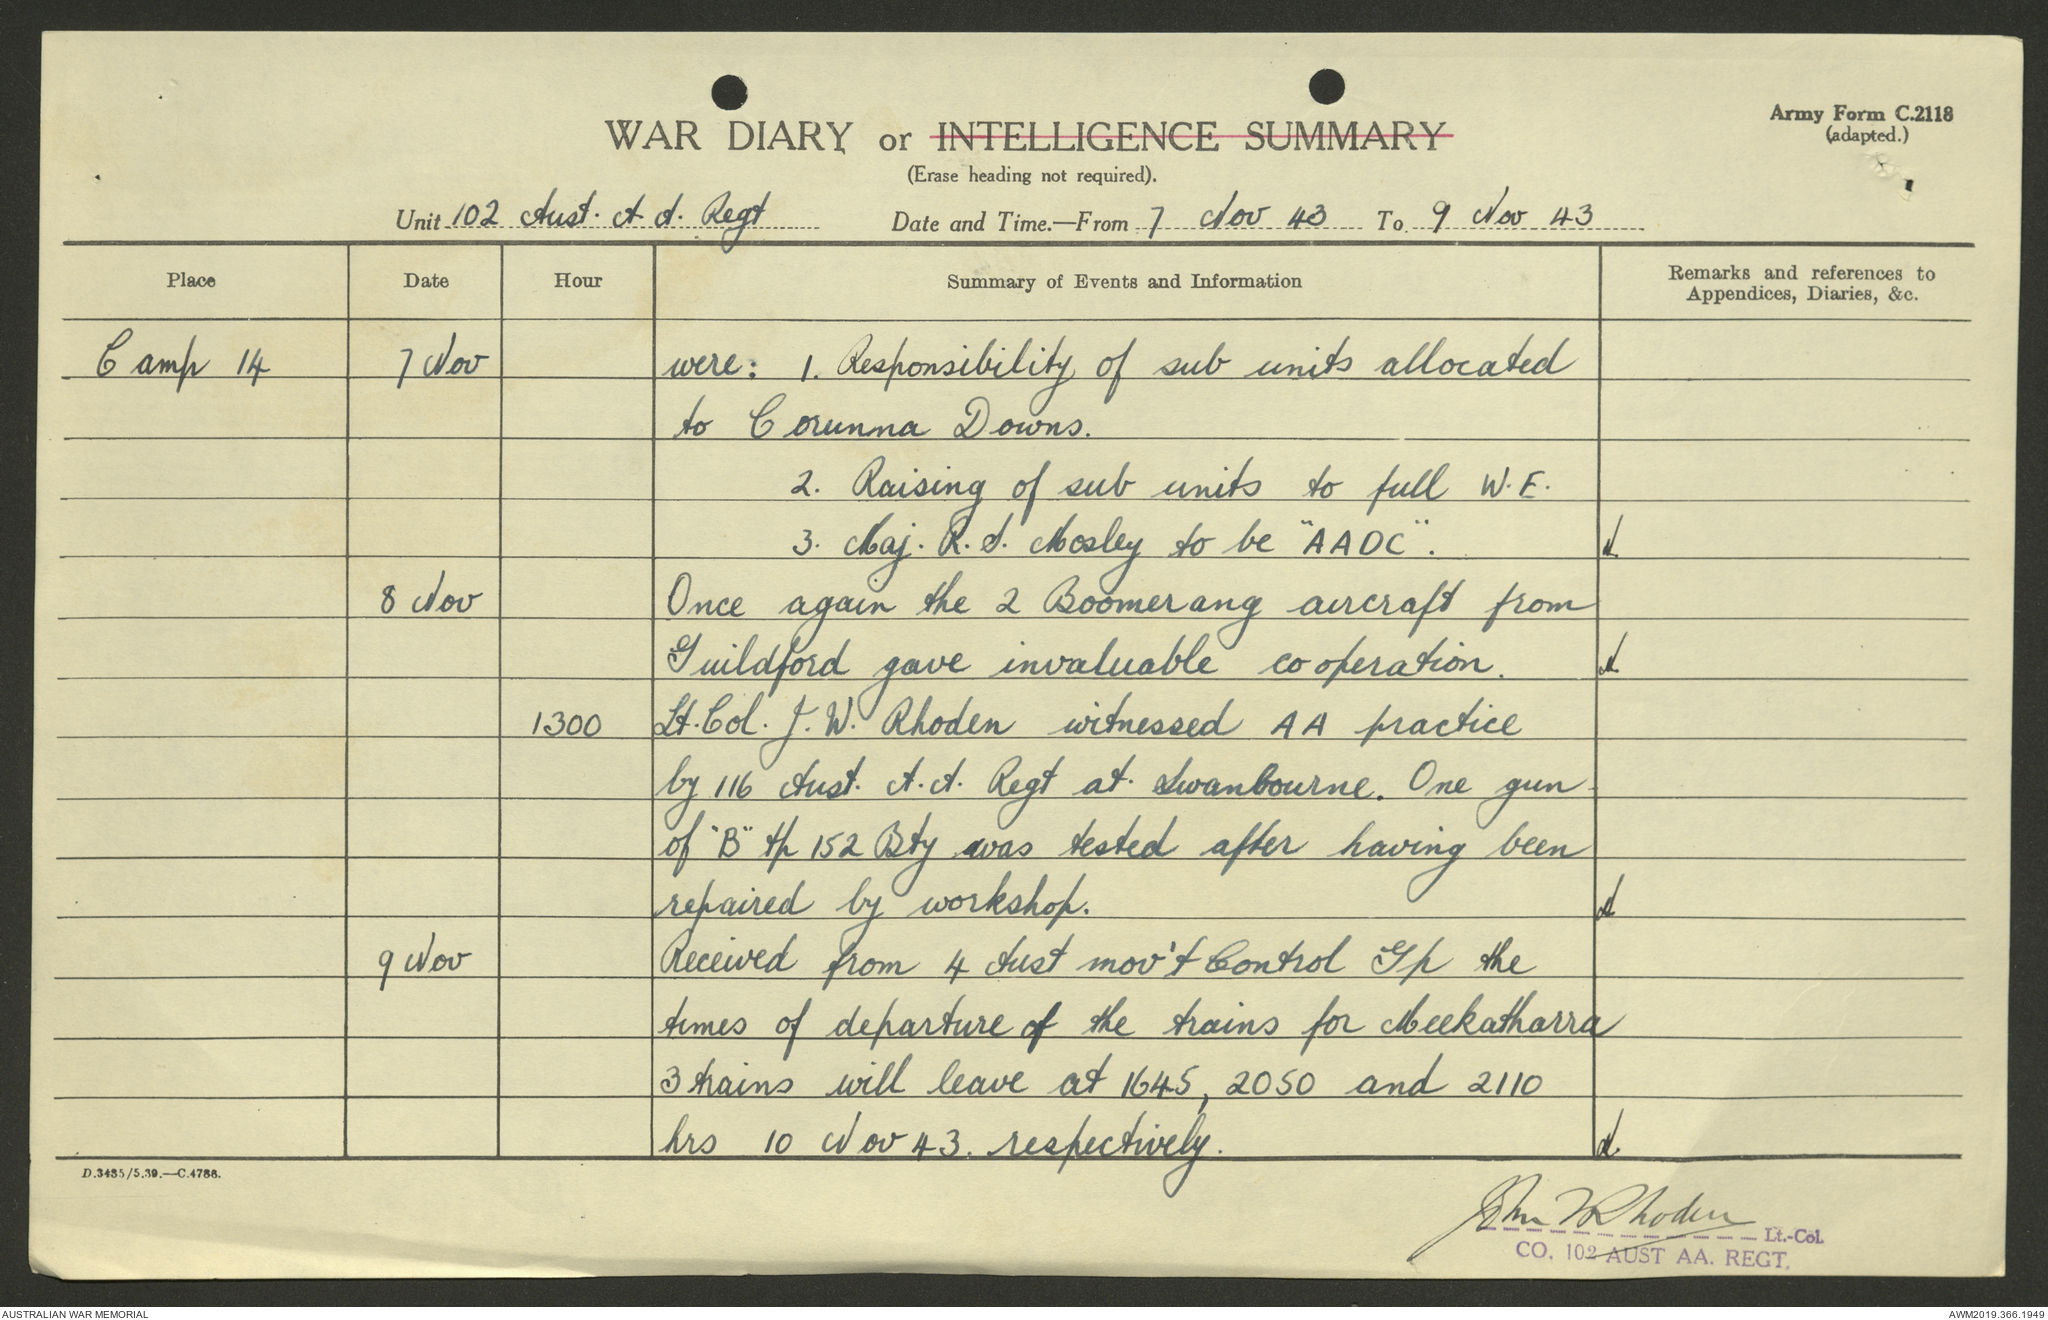 Army Form C.2118
(adapted.)
WAR DIARY or INTELLIGENCE SUMMARY
(Erase heading not required).
Unit 102 Aust. A A. Regt Date and Time.—From 7 Nov 43 To 9 Nov 43
Place Date Hour Summary of Events and Information Remarks and references to
Appendices, Diaries, &c.
Camp 14 7 Nov were: 1. Responsibility of sub units allocated
to Corunna Downs.
2. Raising of sub units to full W.E.
3. Maj. R.S. Mosley to be "AADC".
8 Nov Once again the 2 Boomerang aircraft from
Guildford gave invaluable cooperation.
1300 Lt. Col. J. W. Rhoden witnessed AA practice
by 116 Aust. A.A. Regt at Swanbourne. One gun
of "B" tp 152 Bty was tested after having been
repaired by workshop.
9 Nov Received from 4 Aust mov't Control Gp the
times of departure of the trains for Meekatharra
3 trains will leave at 1645, 2050 and 2110
hrs 10 Nov 43. respectively.
D.3485/5.39.—C.4788.
John W Rhoden Lt.-Col.
CO. 102 AUST AA. REGT.
AUSTRALIAN WAR MEMORIAL AWM2019.366.1949